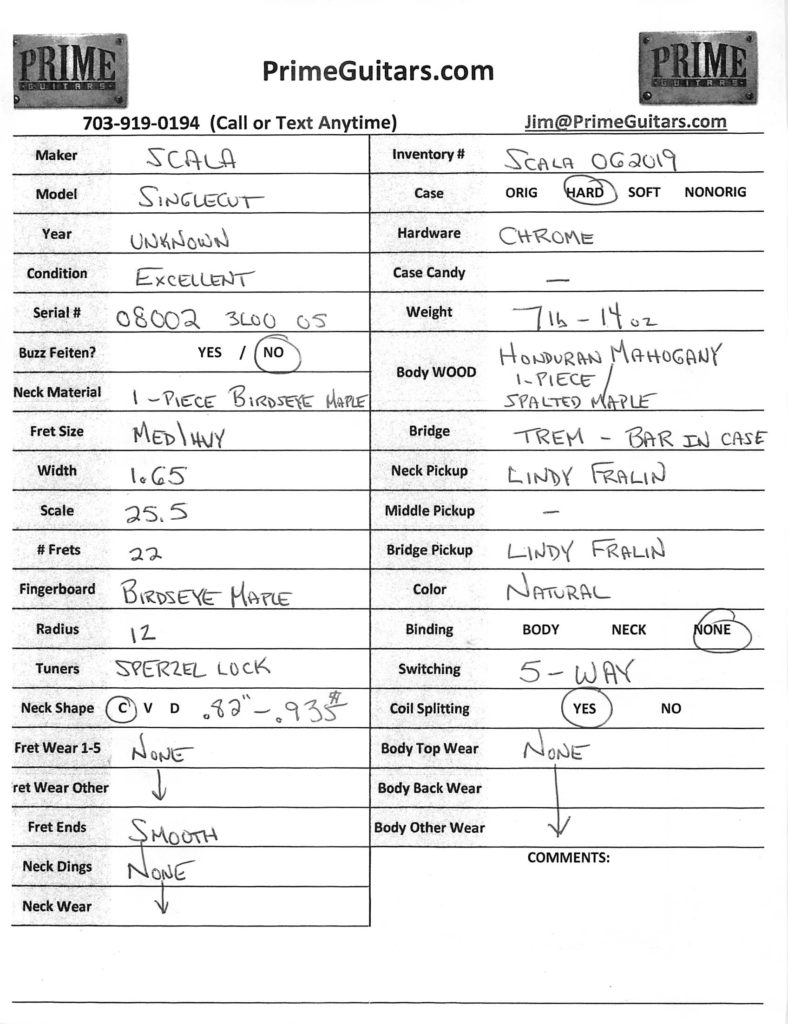 PRIME
GUITARS
PrimeGuitars.com
PRIME
GUITARS
703-919-0194 (Call or Text Anytime)
Jim@PrimeGuitars.com
Maker SCALA
Model SINGLECUT
Year UNKNOWN
Condition EXCELLENT
Serial # 08002 3L00 05
Buzz Feiten? YES / NO
Neck Material 1-PIECE BIRDSEYE MAPLE
Fret Size MED\HVY
Width 1.65
Scale 25.5
# Frets 22
Fingerboard BIRDSEYE MAPLE
Radius 12
Tuners SPERZEL LOCK
Neck Shape C V D .82" - .935"
Fret Wear 1-5 NONE
ret Wear Other
Fret Ends SMOOTH
Neck Dings NONE
Neck Wear
Inventory # SCALA 062019
Case ORIG HARD SOFT NONORIG
Hardware CHROME
Case Candy —
Weight 7 lb - 14 oz
Body WOOD HONDURAN MAHOGANY
1-PIECE /
SPALTED MAPLE
Bridge TREM - BAR IN CASE
Neck Pickup LINDY FRALIN
Middle Pickup —
Bridge Pickup LINDY FRALIN
Color NATURAL
Binding BODY NECK NONE
Switching 5-WAY
Coil Splitting YES NO
Body Top Wear NONE
Body Back Wear
Body Other Wear
COMMENTS: